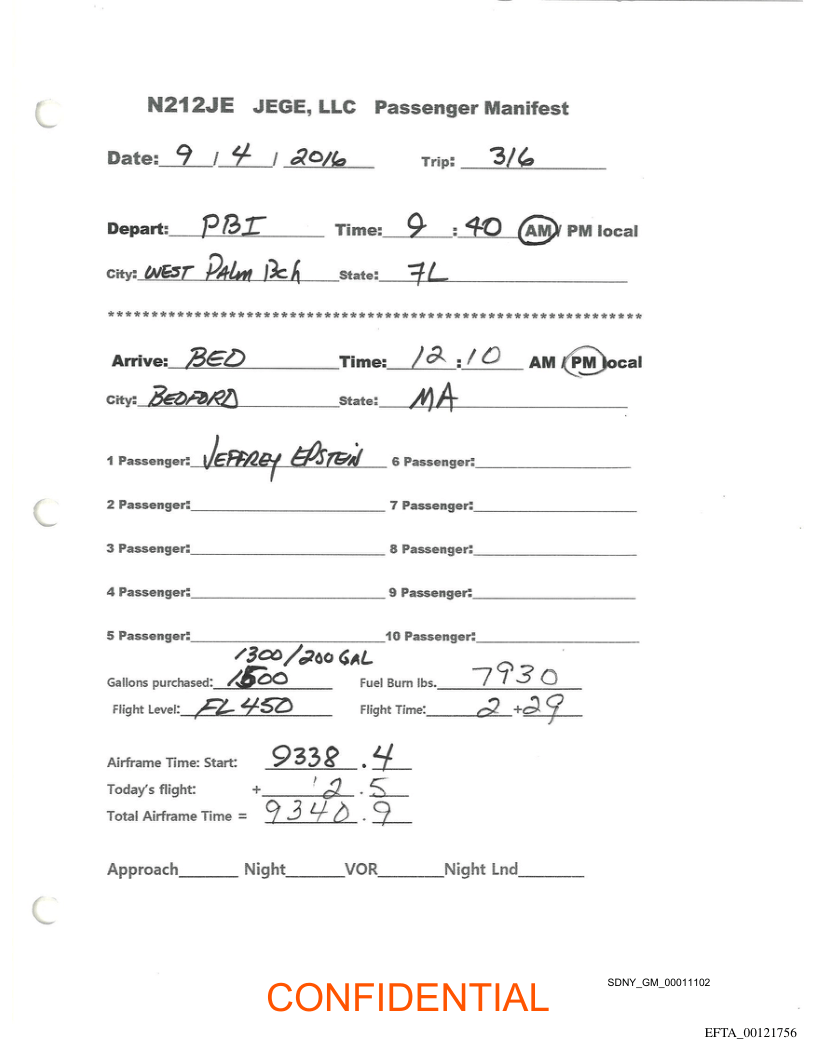 N212JE JEGE, LLC Passenger Manifest
Date: 9 / 4 / 2016 Trip: 316
Depart: PBI Time: 9 : 40 AM / PM local
City: WEST PALM BCH State: FL
*************************************************************
Arrive: BED Time: 12 : 10 AM / PM local
City: BEDFORD State: MA
1 Passenger: JEFFREY EPSTEIN 6 Passenger:
2 Passenger: 7 Passenger:
3 Passenger: 8 Passenger:
4 Passenger: 9 Passenger:
5 Passenger: 10 Passenger:
1300/200 GAL
Gallons purchased: 1500 Fuel Burn lbs. 7930
Flight Level: FL 450 Flight Time: 2 + 29
Airframe Time: Start: 9338 . 4
Today's flight: + 2 . 5
Total Airframe Time = 9340 . 9
Approach Night VOR Night Lnd
SDNY_GM_00011102
CONFIDENTIAL
EFTA_00121756